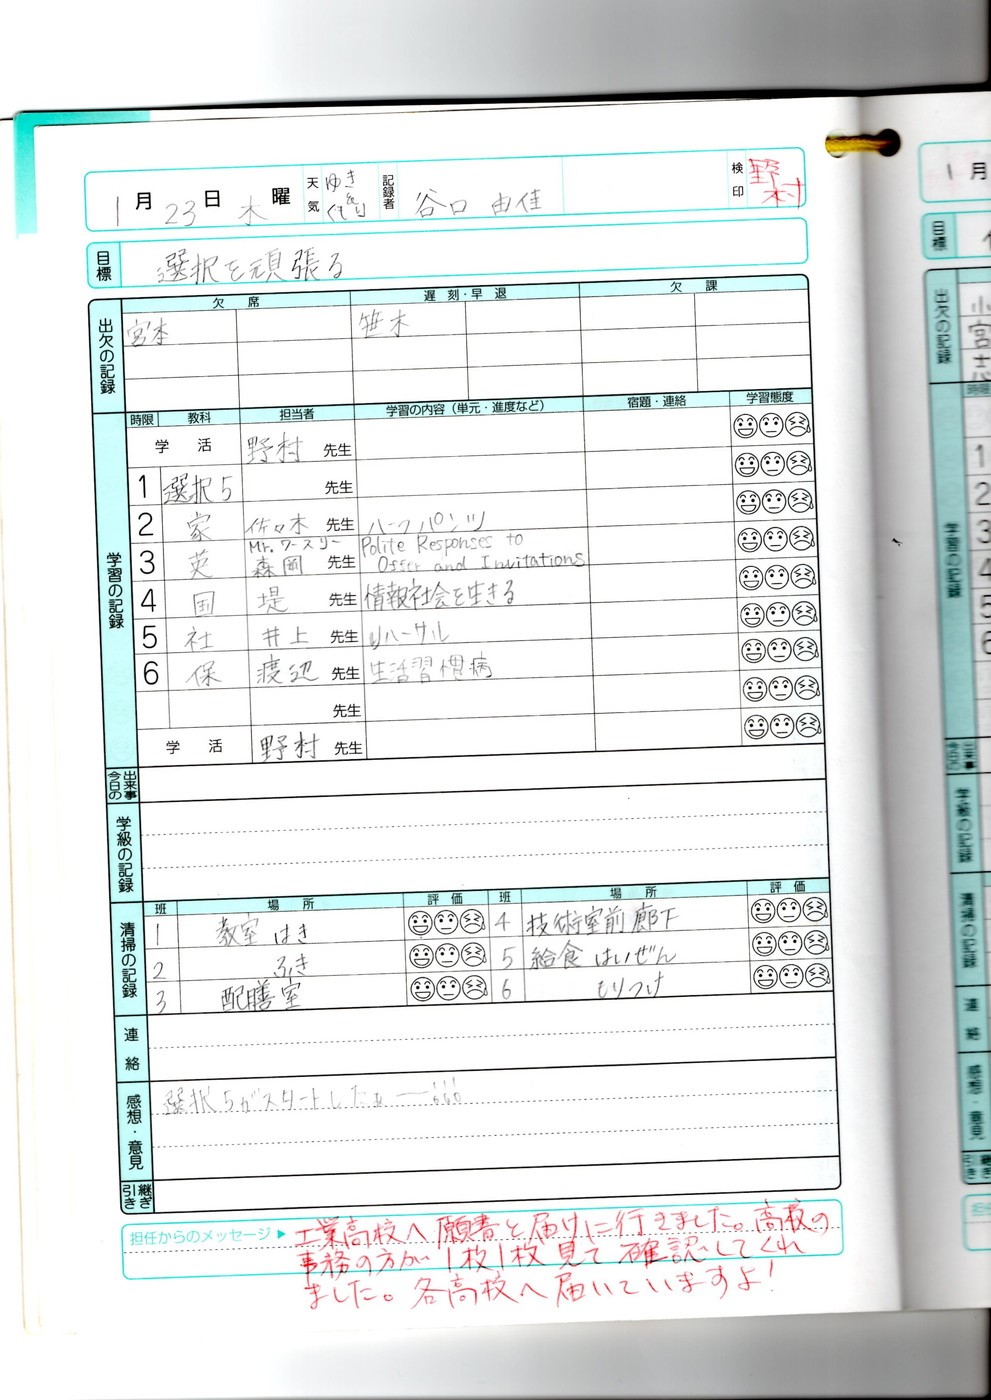 1月23日 木曜 天気 ゆき&くもり 記録者 谷口 由佳 検印 野村
目標 選択を頑張る
出欠の記録 欠席 遅刻・早退 欠課
宮本 笹木
学習の記録
時限 教科 担当者 学習の内容(単元・進度など) 宿題・連絡 学習態度
学活 野村 先生
1 選択5 先生
2 家 佐々木 先生 ハーフパンツ
3 英 Mr.ワースリー 森岡 先生 Polite Responses to Offer and Invitations
4 国 堤 先生 情報社会を生きる
5 社 井上 先生 リハーサル
6 保 渡辺 先生 生活習慣病
先生
学活 野村 先生
今日の出来事
学級の記録
清掃の記録
班 場所 評価 班 場所 評価
1 教室 はき 4 技術室前廊下
2 ふき 5 給食 はいぜん
3 配膳室 6 もりつけ
連絡
感想・意見
選択5がスタートしたぁー!!!
引き継ぎ
担任からのメッセージ▶ 工業高校へ願書を届けに行きました。高校の
事務の方が1枚1枚見て確認してくれ
ました。各高校へ届いていますよ!
1月
目標
出欠の記録
宮
時限
1
2
3
4
5
6
学習の記録
今日の出来事
学級の記録
清掃の記録
連絡
感想・意見
引き継ぎ